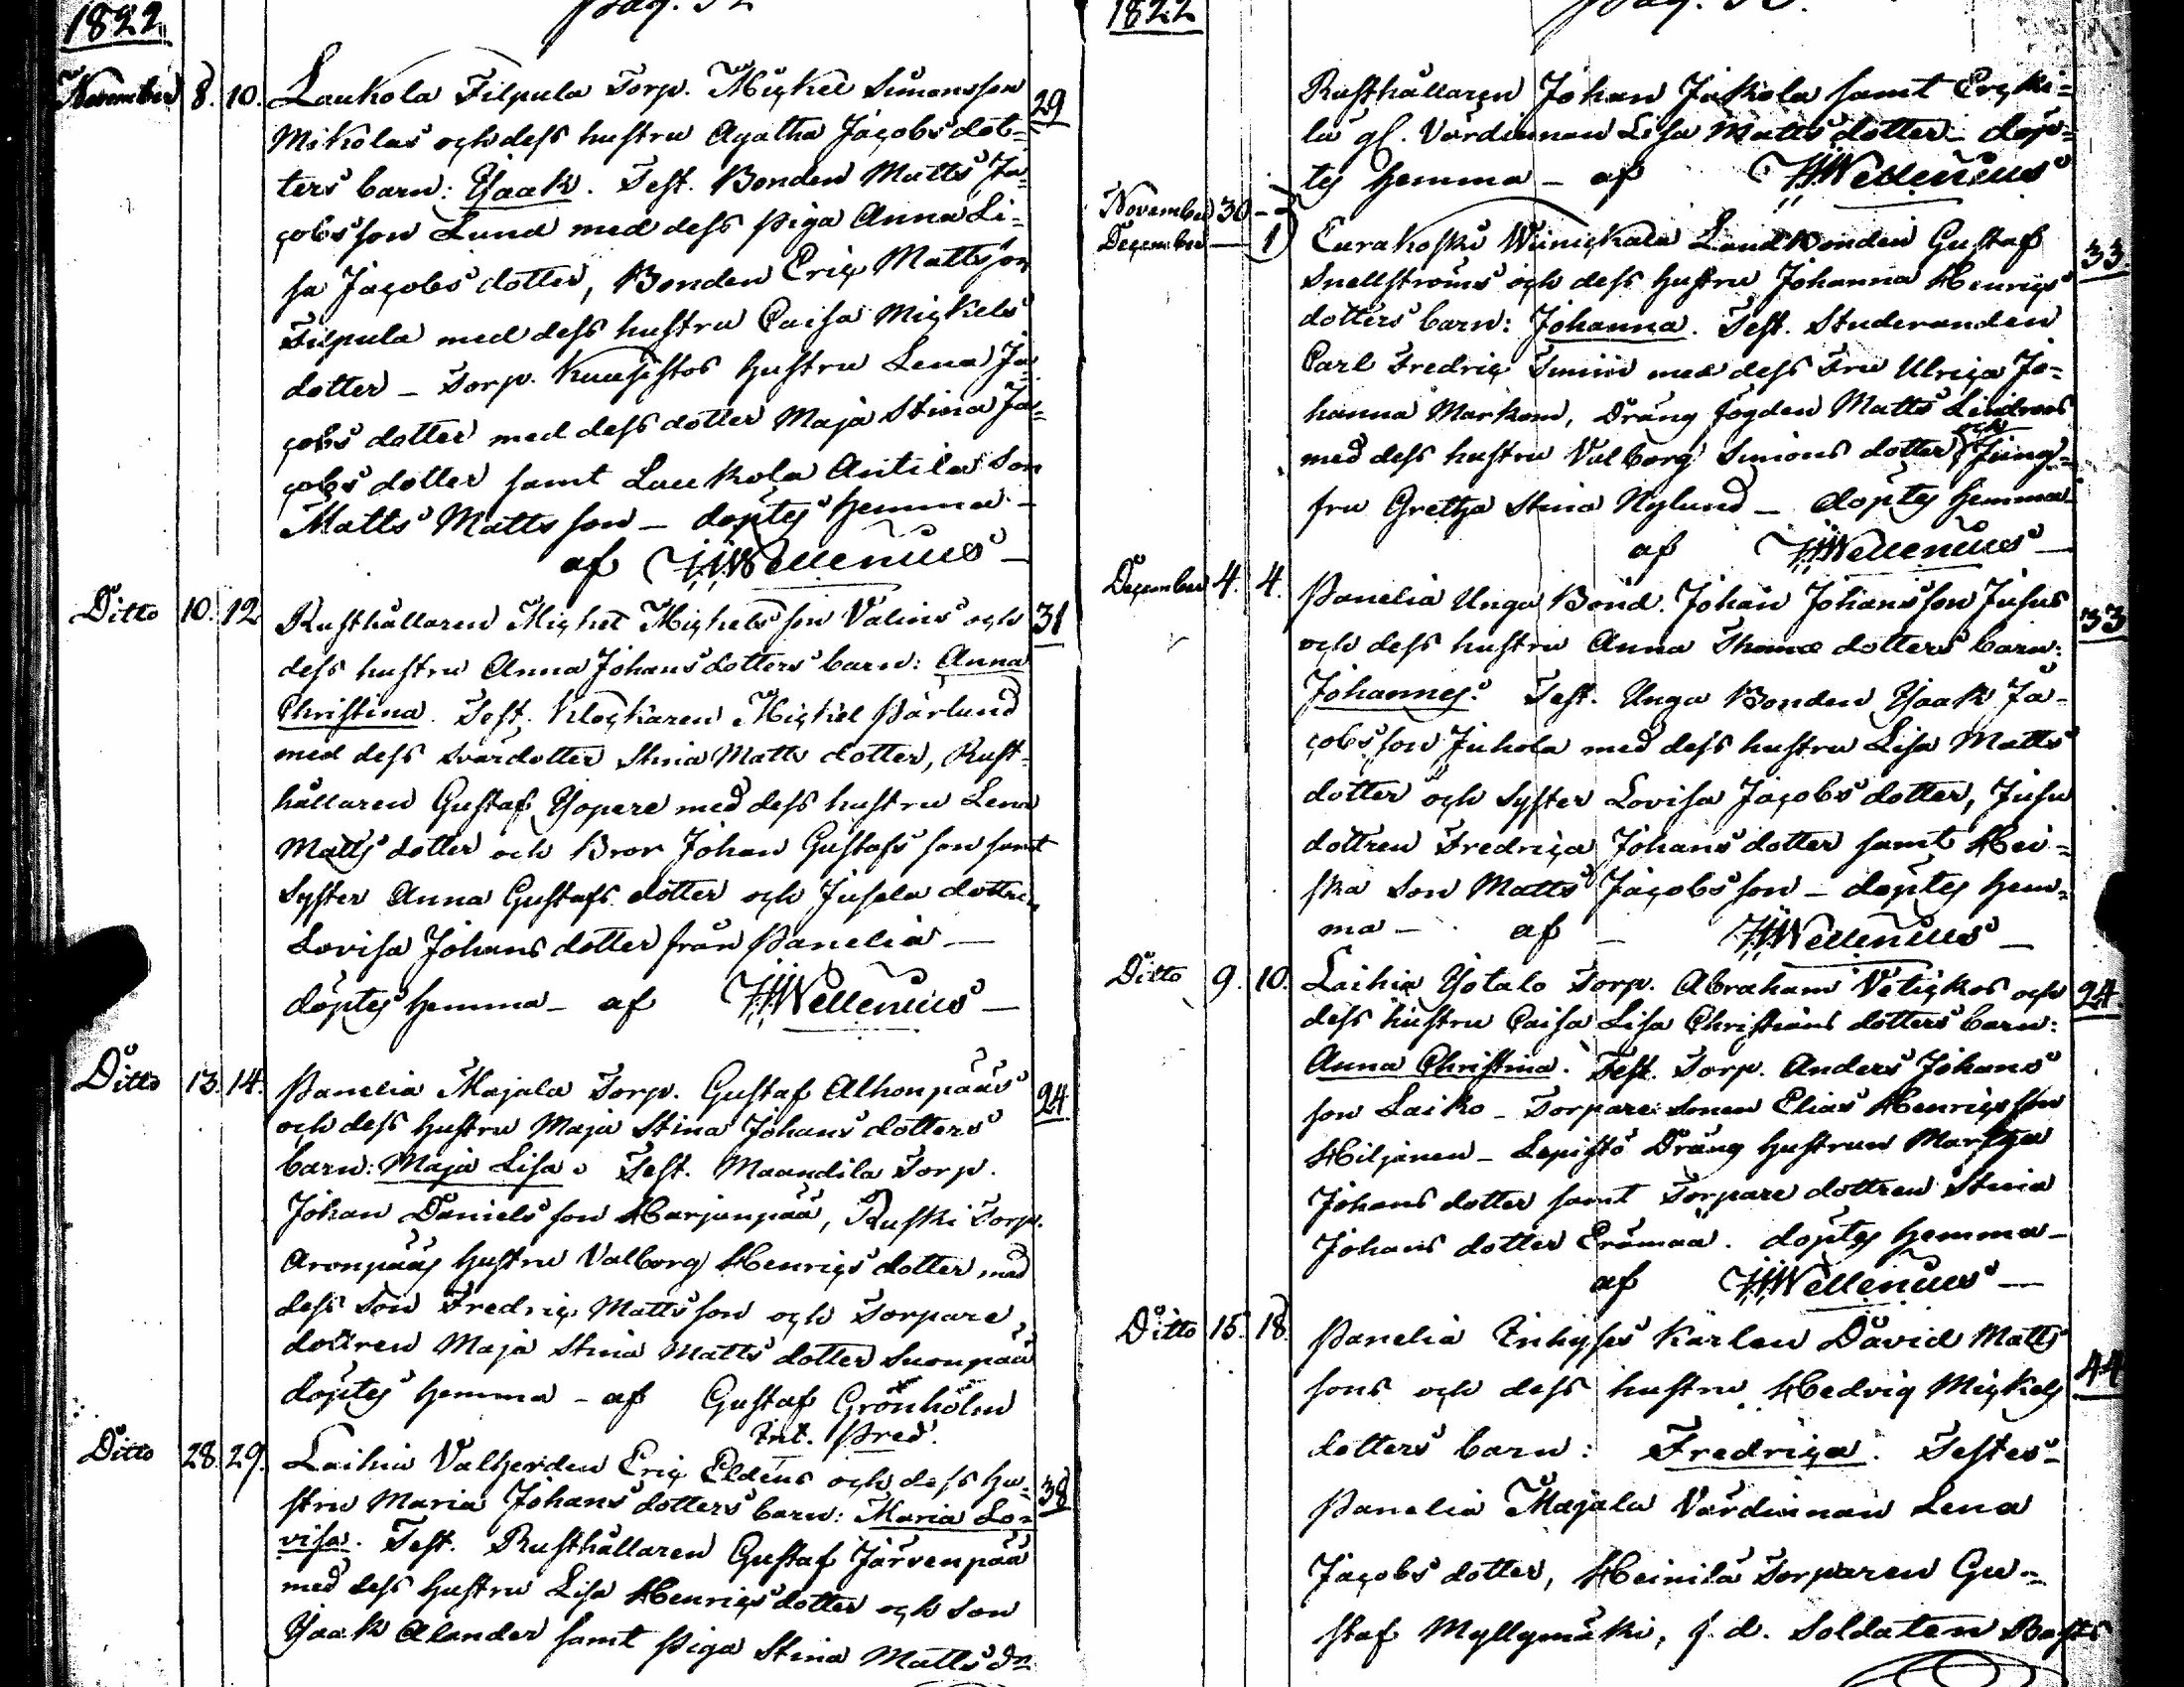 1822
November 8. 10. Laukola Filpula Torp. Mickel Simonsson 29
Mikolas och dess hustru Agatha Jacobs dot-
ters barn: Isaak. Test. Bonden Matts Ja-
cobsson Lund med dess piga Anna Li-
sa Jacobs dotter, Bonden Eric Mattsson
Filpula med dess hustru Caisa Mickels
dotter – Torp. Kuusistos hustru Lena Ja-
cobs dotter med dess dotter Maja Stina Ja-
cobs dotter samt Laukola Antila Son
Matts Matts son – döptes hemma –
af HHWellenius –
Ditto 10. 12 Rusthållaren Michel Michels son Valins och 31
dess hustru Anna Johans dotters barn: Anna
Christina. Test. Klockaren Mickel Pärlund
med dess svärdotter Stina Matts dotter, Rust-
hållaren Gustaf Yopere med dess hustru Lena
Matts dotter och Bror Johan Gustafs son samt
Syster Anna Gustafs dotter och Jusela dottren
Lovisa Johans dotter från Panelia –
döptes hemma – af HHWellenius –
Ditto 13. 14. Panelia Majala Torp. Gustaf Alhonpääs 24
och dess hustru Maja Stina Johans dotters
barn: Maja Lisa. Test. Maandila Torp.
Johan Daniels son Harjunpää, Ruski Torp.
Aronpääs hustru Valborg Henrics dotter med
dess Son Fredric Matts son och Torpare
dottren Maja Stina Matts dotter Suonpää
döptes hemma – af Gustaf Grönholm
Ditto 28. 29. Laihia Valherden Eric Eldens och dess hu- 38
stru Maria Johans dotters barn: Maria Lo-
visa. Test. Rusthållaren Gustaf Järvenpää
med dess hustru Lisa Henrics dotter och Son
Isaak Alander samt piga Stina Matts dr.
1822
Rusthållaren Johan Jakola samt Ercki-
la gl. Värdinnan Lisa Matts dotter – döp-
tes hemma – af HHWellenius
November 30 –
December – 1 Eurakoski Winickala Landbonden Gustaf 33.
Snellströms och dess hustru Johanna Henrics
dotters barn: Johanna. Test. Studeranden
Carl Fredric med dess Fru Ulrica Jo-
hanna Markom, Drängfogden Matts Lindroos
med dess hustru Valborg Simons dotter och Jung-
fru Gretha Stina Nylund – döptes hemma –
af HHWellenius –
December 4. 4. Panelia Unga Bond. Johan Johansson Jusus 33
och dess hustru Anna Thomæ dotters barn:
Johannes. Test. Unga Bonden Isaak Ja-
cobs son Juhola med dess hustru Lisa Matts
dotter och Syster Lovisa Jacobs dotter, Jusu
dottren Fredrica Johans dotter samt Hei-
ska Son Matts Jacobs son – döptes hem-
ma – af – HHWellenius –
Ditto 9. 10. Laihia Yotalo Torp. Abraham Vetickos och 24
dess hustru Caisa Lisa Christians dotters barn:
Anna Christina. Test. Torp. Anders Johans
son Laiko – Torpare sonen Elias Henrics son
Hiljanen – Lepistö Dräng hustrun Martha
Johans dotter samt Torpare dottren Stina
Johans dotter Erämaa. döptes hemma –
af HHWellenius –
Ditto 15. 18. Panelia Inhyses Karlen David Matts 44
sons och dess hustru Hedvig Mickels
dotters barn: Fredrica. Testes –
Panelia Majala Värdinnan Lena
Jacobs dotter, Heinilä Torparen Gu-
staf Myllymäki, f.d. Soldaten Basts